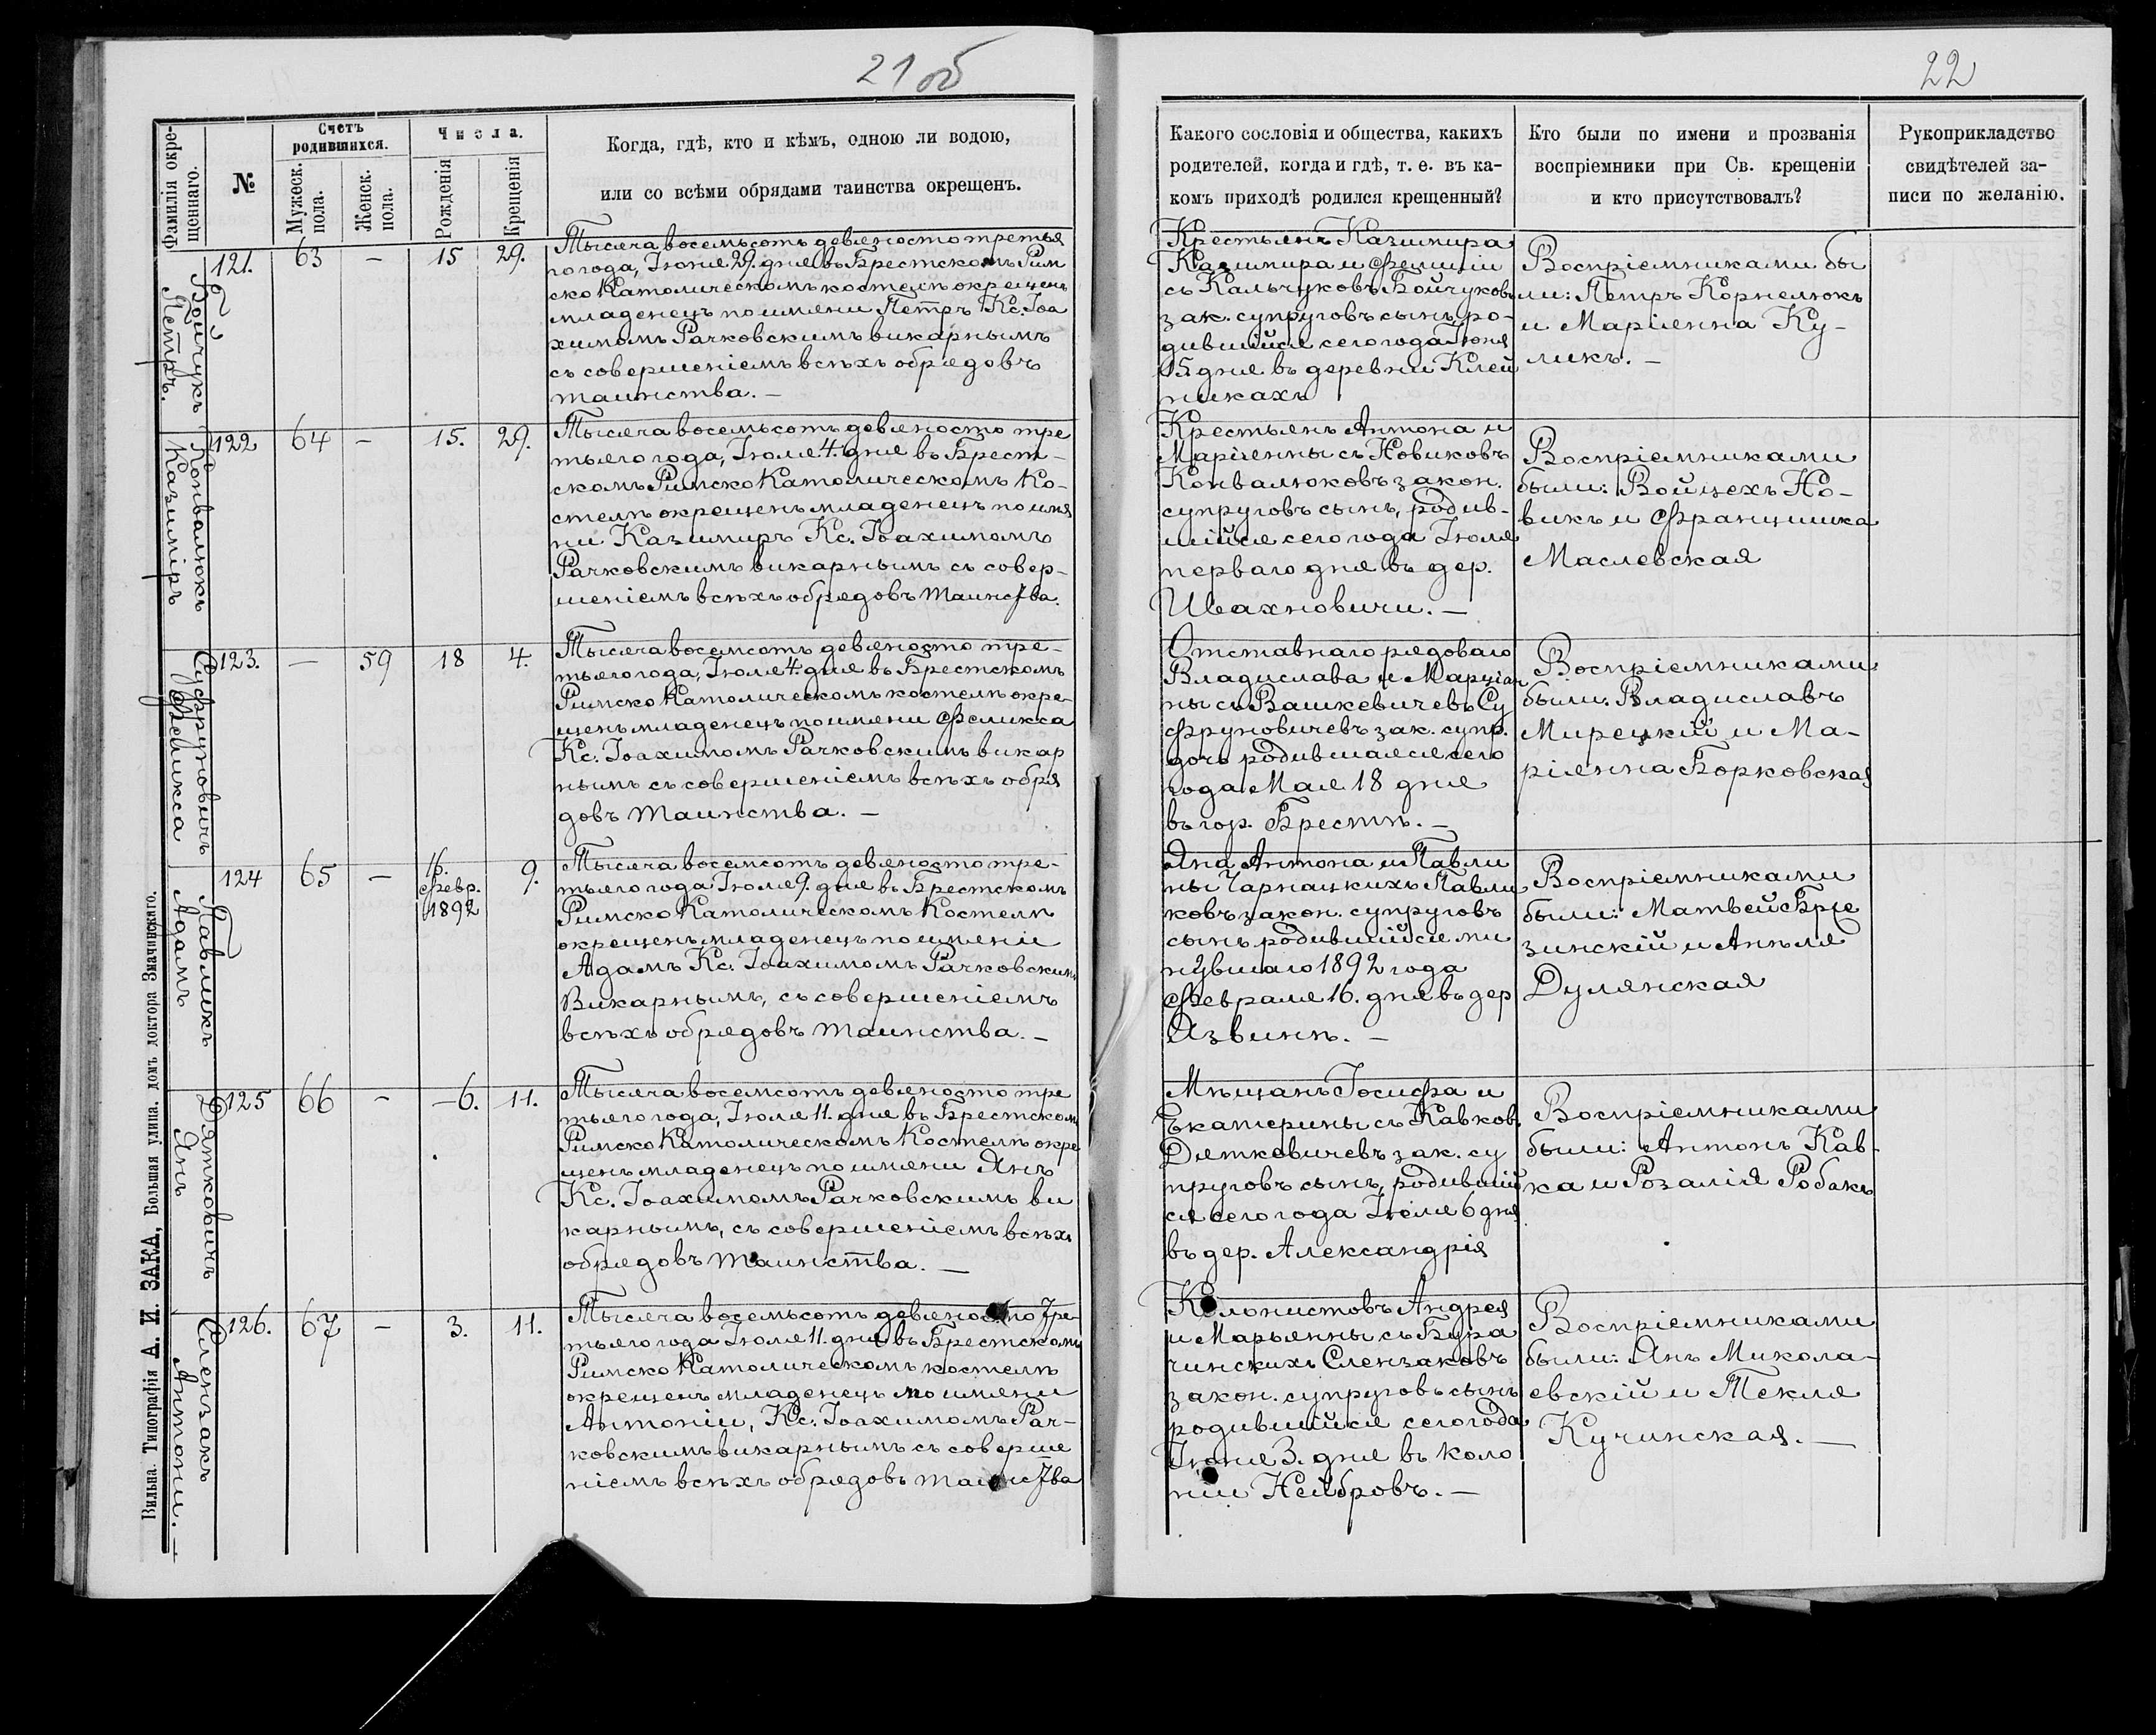 21 об
22
Фамилія окре-
щеннаго.
№
Счетъ
родившихся.
Мужеск.
пола.
Женск.
пола.
Числа.
Рожденія
Крещенія
Когда, гдѣ, кто и кѣмъ, одною ли водою,
или со всѣми обрядами таинства окрещенъ.
Какого сословія и общества, какихъ
родителей, когда и гдѣ, т. е. въ ка-
комъ приходѣ родился крещенный?
Кто были по имени и прозванія
воспріемники при Св. крещеніи
и кто присутствовалъ?
Рукоприкладство
свидѣтелей за-
писи по желанію.
Бойчукъ
Петръ.
121.
63
–
15
29.
Тысяча восемьсотъ девяносто третья
го года, Іюня 29. дня въ Брестскомъ Рим
ско Католическомъ костелѣ окрещенъ
младенецъ по имени Петръ Кс. Іоа
химомъ Рачковскимъ викарнымъ
съ совершеніемъ всѣхъ обрядовъ
таинства. –
Крестьянъ Казимира
Казимира и Фелиціи
съ Кальчуковъ Бойчуковъ
зак. супруговъ сынъ, ро-
дившійся сего года Іюня
15. дня въ деревни Клей
никахъ
Воспріемниками бы
ли: Петръ Корнелюкъ
и Маріянна Ку-
ликъ. –
Конвалюкъ
Казиміръ
122
64
–
15.
29.
Тысяча восемьсотъ девяносто тре
тьяго года, Іюля 4. дня въ Брест-
скомъ Римско Католическомъ Ко-
стелѣ окрещенъ младенецъ по имя
ни Казимиръ Кс. Іоахимомъ
Рачковскимъ викарнымъ съ совер-
шеніемъ всѣхъ обрядовъ таинства.
Крестьянъ Антона и
Маріянны съ Новиковъ
Конвалюковъ закон.
супруговъ сынъ, родив-
шійся сего года Іюля
перваго дня въ дер.
Ивахновичи. –
Воспріемниками
были: Войцехъ Но-
викъ и Францишка
Маслевская
Суфруновичъ
Феликса
123.
–
59
18
4.
Тысяча восемсотъ девяносто тре-
тьяго года, Іюля 4. дня въ Брестскомъ
Римско Католическомъ костелѣ окре-
щенъ младенецъ по имени Феликса
Кс. Іоахимомъ Рачковскимъ викар
нымъ съ совершеніемъ всѣхъ обря
довъ таинства. –
Отставнаго рядоваго
Владислава и Марціан
ны съ Вашкевичевъ Су
фруновичевъ зак. супр.
дочь родившаяся сего
года Мая 18 дня
въ гор. Брестѣ. –
Воспріемниками
были: Владиславъ
Мирецкій и Ма-
ріянна Борковская
Павликъ
Адамъ
124
65
–
16.
Февр.
1892
9.
Тысяча восемсотъ девяносто тре-
тьяго года Іюля 9. дня въ Брестскомъ
Римско Католическомъ Костелѣ
окрещенъ младенецъ по имяніи
Адамъ Кс. Іоахимомъ Рачковскимъ
Викарнымъ, съ совершеніемъ
всѣхъ обрядовъ таинства. –
Яна Антона и Павли
ны Чарнацкихъ Павли
ковъ закон. супруговъ
сынъ родившійся ми
нувшаго 1892 года
Февраля 16. дня въ дер
Язвинѣ. –
Воспріемниками
были: Матвей Брже
зинскій и Анѣля
Дулянская
Дятковичъ
Янъ
125
66
–
–6.
11.
Тысяча восемсотъ девяносто тре
тьяго года, Іюля 11. дня въ Брестском
Римско Католическомъ Костелѣ окре
щенъ младенецъ по имяни Янъ
Кс. Іоахимомъ Рачковскимъ ви
карнымъ, съ совершеніемъ всѣхъ
обрядовъ таинства. –
Мѣщанъ Іосифа и
Екатерины съ Кавков.
Дяткевичевъ зак. су
пруговъ сынъ, родившій
ся сего года Іюля 6 дня
въ дер. Александрія
Воспріемниками
были: Антонъ Кав-
ка и Розалія Робакъ
Слензакъ
Антони. –
126.
67
–
3.
11.
Тысяча восемьсотъ девяносто тре-
тьяго года Іюля 11. дня въ Брестскомъ
Римско Католическомъ костелѣ
окрещенъ младенецъ по имяни
Антоніи, Кс. Іоахимомъ Рач-
ковскимъ викарнымъ съ соверше
ніемъ всѣхъ обрядовъ таинства
Колонистовъ Андрея
и Марьянны съ Бура
чинскихъ Слензаковъ
закон. супруговъ сынъ
родившійся сего года
Іюня 3. дня въ коло
ніи Нейбровъ. –
Воспріемниками
были: Янъ Микола-
евскій и Текля
Кучинская. –
Вильна. Типографія А. И. ЗАКА, Большая улица, домъ доктора Змачинскаго.